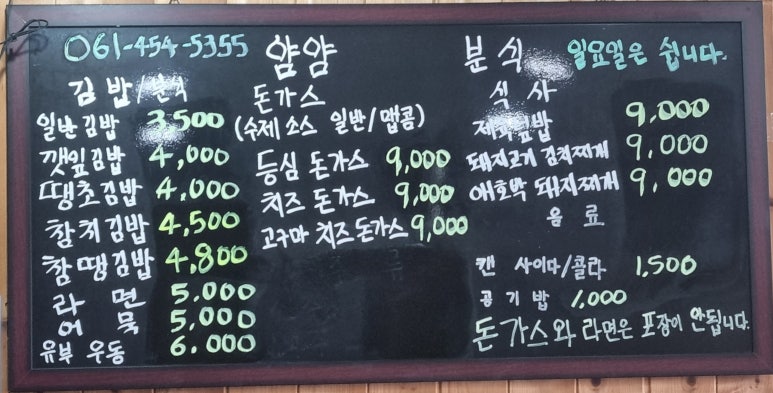 061-454-5355 얌얌 분식 일요일은 쉽니다.
김밥/분식
일반김밥 3,500
깻잎김밥 4,000
땡초김밥 4,000
참치김밥 4,500
참땡김밥 4,800
라면 5.000
어묵 5.000
유부우동 6.000
돈가스
(수제소스 일반/맵콤)
등심 돈가스 9,000
치즈 돈가스 9,000
고구마 치즈돈가스 9,000
식사
제육덮밥 9,000
돼지고기 김치찌개 9,000
애호박 돼지찌개 9,000
음료
캔 사이다/콜라 1,500
공기밥 1,000
돈가스와 라면은 포장이 안됩니다.